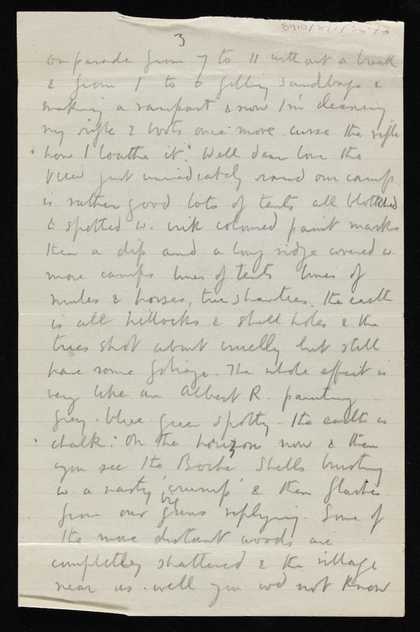 3
on parade from 7 to 11 without a break
& from 1 to 6 filling sandbags &
making a rampart & now I'm cleaning
my rifle & boots once more curse the rifle
how I loathe it. Well dear love the
view just immediately round our camp
is rather good lots of tents all blotched
& spotted w. coloured paint marks
then a dip and a long ridge covered w.
more camps lines of tents lines of
mules & horses, tree shanties. The earth
is all hillocks & shell holes & the
trees shot about cruelly but still
have some foliage. The whole effect is
very like an Albert R. painting
grey-blue green spotty. The earth is
chalk. On the horizon now & then
you see the Boche shells bursting
w a nasty 'crump' & then flashes
from our big guns replying. Some of
the more distant woods are
completely shattered & the village
near us - well you wd not know